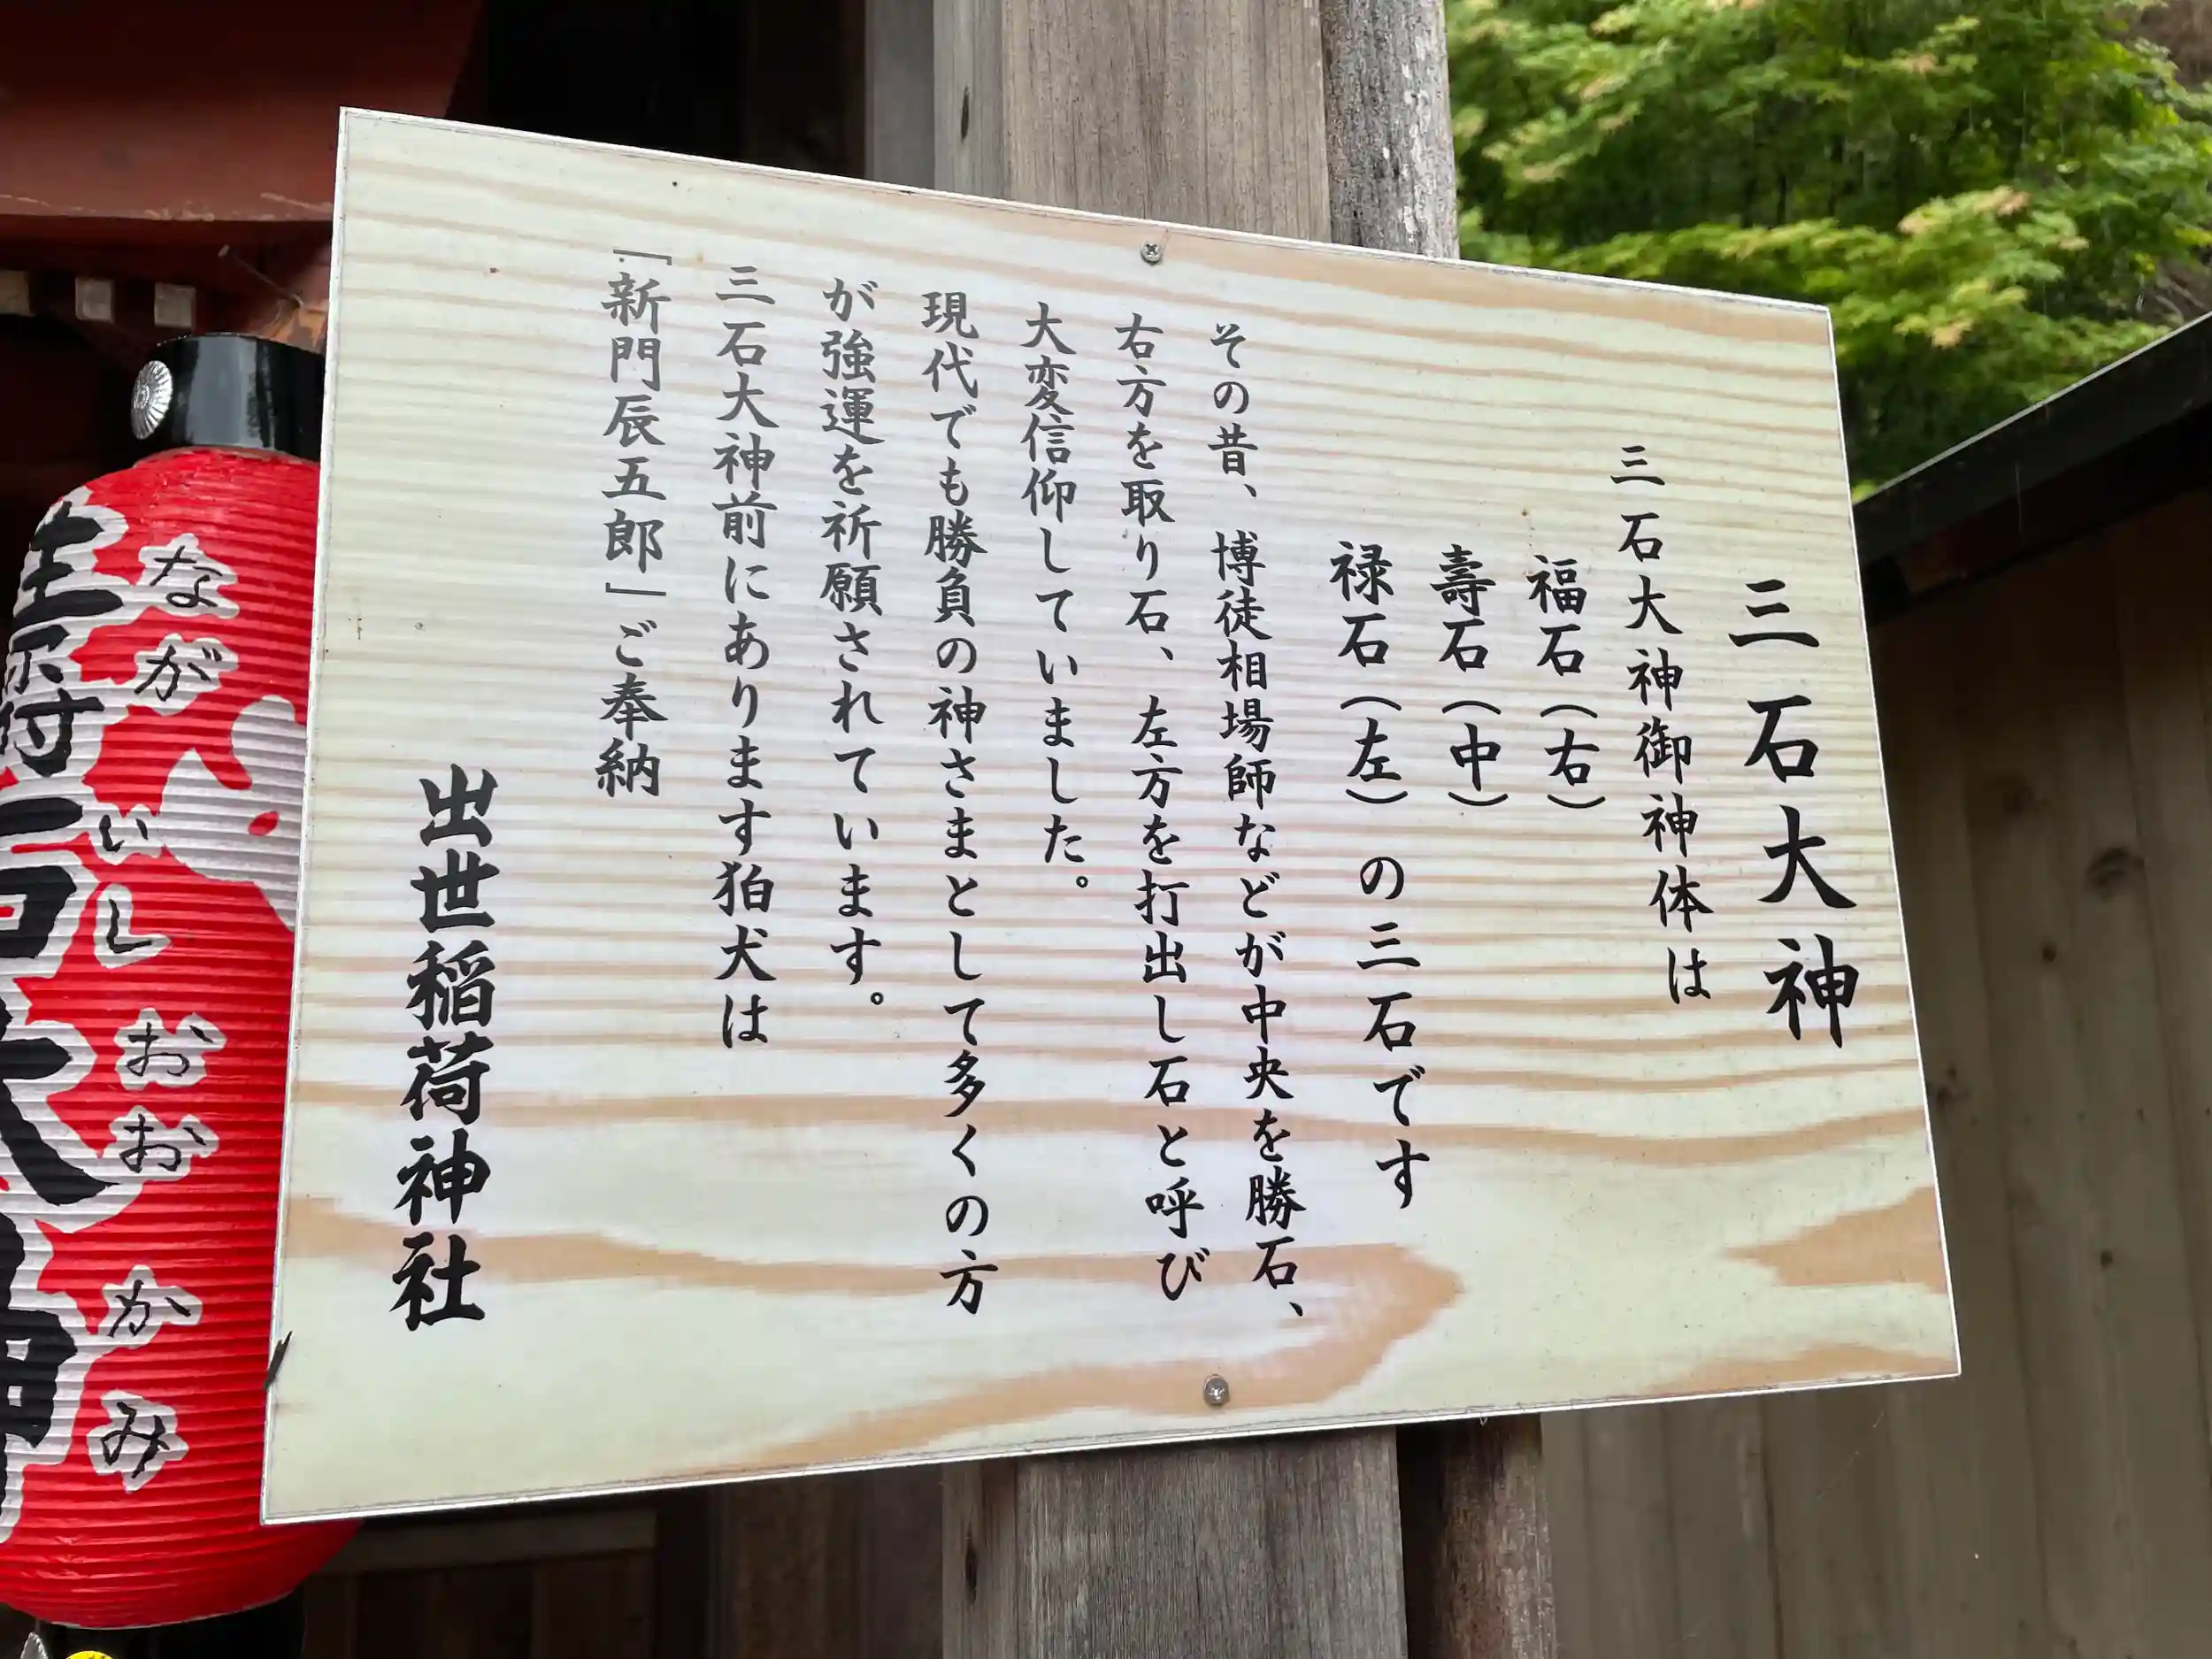 三石大神
三石大神御神体は
福石（右）
壽石（中）
禄石（左）の三石です
その昔、博徒相場師などが中央を勝石、
右方を取り石、左方を打出し石と呼び
大変信仰していました。
現代でも勝負の神さまとして多くの方
が強運を祈願されています。
三石大神前にあります狛犬は
「新門辰五郎」ご奉納
出世稲荷神社
ながいしおおかみ